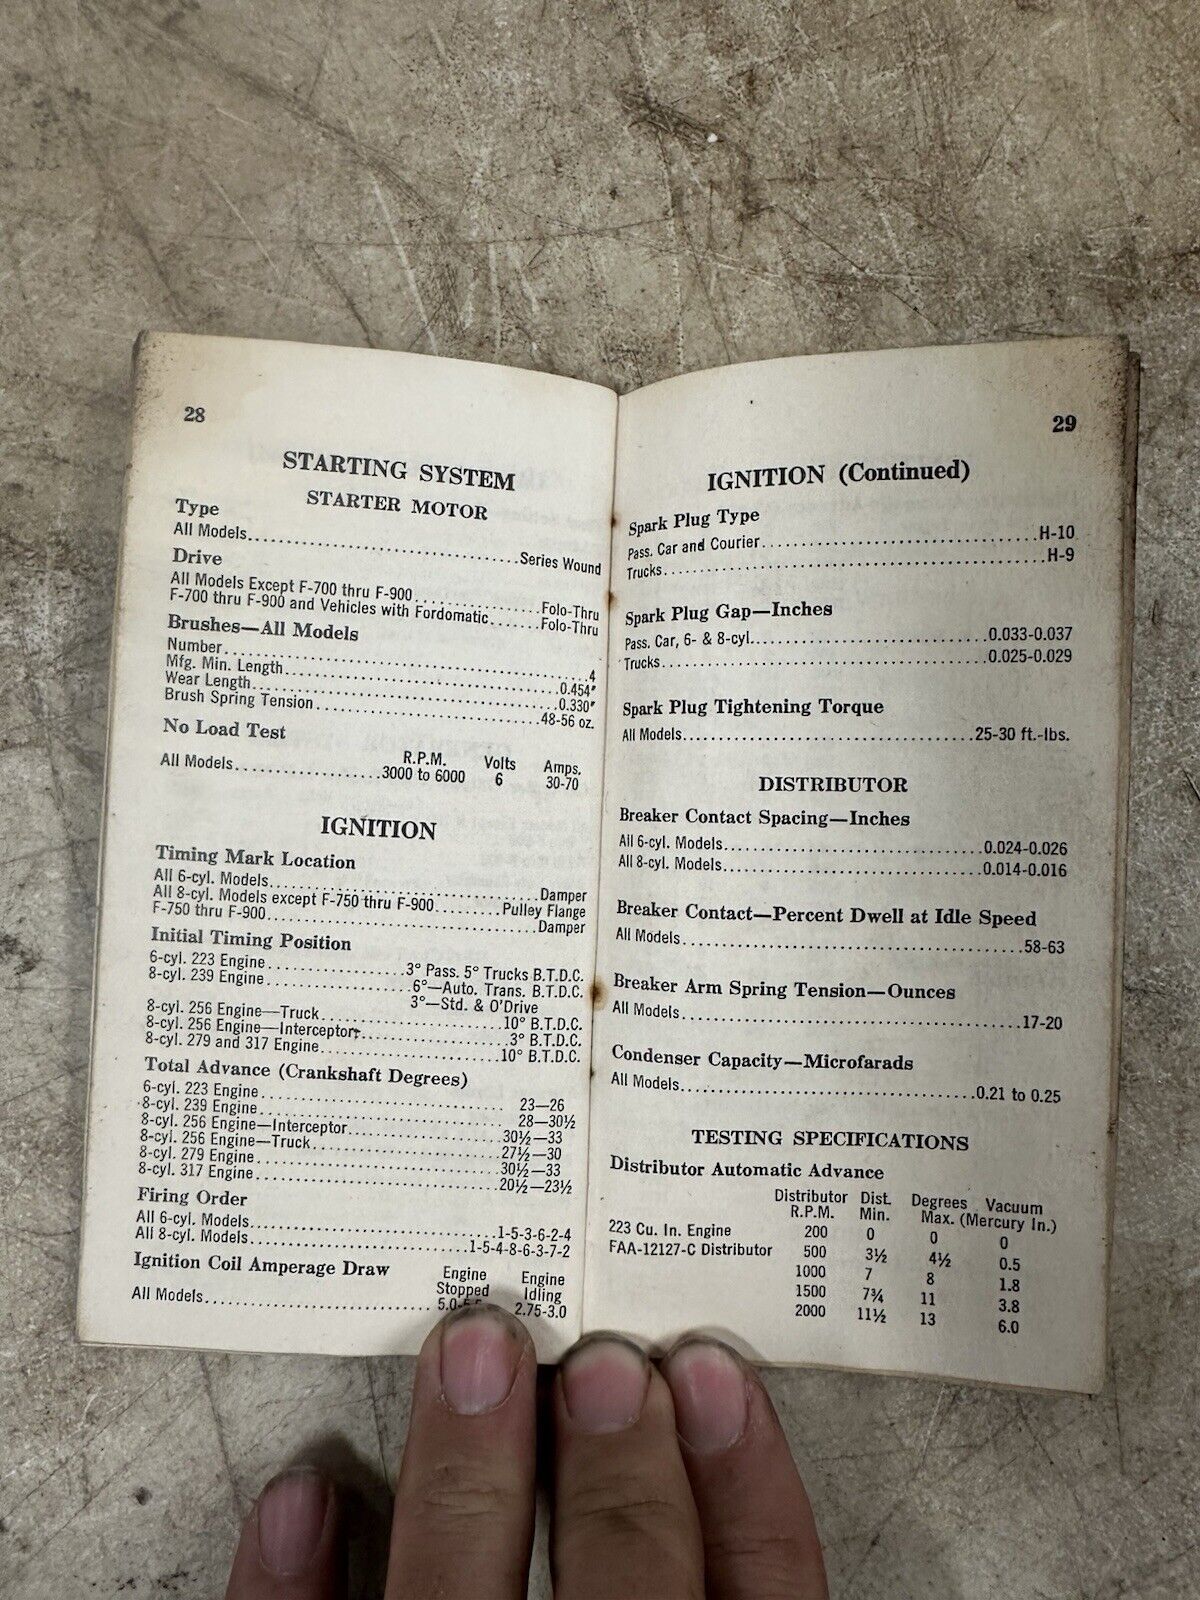 28
STARTING SYSTEM
STARTER MOTOR
Type
All Models..........Series Wound
Drive
All Models Except F-700 thru F-900..........Folo-Thru
F-700 thru F-900 and Vehicles with Fordomatic.......Folo-Thru
Brushes—All Models
Number..........4
Mfg. Min. Length..........0.454"
Wear Length..........0.330"
Brush Spring Tension..........48-56 oz.
No Load Test
R.P.M. Volts Amps.
All Models..........3000 to 6000 6 30-70
IGNITION
Timing Mark Location
All 6-cyl. Models..........Damper
All 8-cyl. Models except F-750 thru F-900.........Pulley Flange
F-750 thru F-900..........Damper
Initial Timing Position
6-cyl. 223 Engine..........3° Pass. 5° Trucks B.T.D.C.
8-cyl. 239 Engine..........6°—Auto. Trans. B.T.D.C.
3°—Std. & O'Drive
8-cyl. 256 Engine—Truck..........10° B.T.D.C.
8-cyl. 256 Engine—Interceptor..........3° B.T.D.C.
8-cyl. 279 and 317 Engine..........10° B.T.D.C.
Total Advance (Crankshaft Degrees)
6-cyl. 223 Engine..........23—26
8-cyl. 239 Engine..........28—30½
8-cyl. 256 Engine—Interceptor..........30½—33
8-cyl. 256 Engine—Truck..........27½—30
8-cyl. 279 Engine..........30½—33
8-cyl. 317 Engine..........20½—23½
Firing Order
All 6-cyl. Models..........1-5-3-6-2-4
All 8-cyl. Models..........1-5-4-8-6-3-7-2
Ignition Coil Amperage Draw
Engine Engine
Stopped Idling
All Models..........5.0- 2.75-3.0
29
IGNITION (Continued)
Spark Plug Type
Pass. Car and Courier..........H-10
Trucks..........H-9
Spark Plug Gap—Inches
Pass. Car, 6- & 8-cyl..........0.033-0.037
Trucks..........0.025-0.029
Spark Plug Tightening Torque
All Models..........25-30 ft.-lbs.
DISTRIBUTOR
Breaker Contact Spacing—Inches
All 6-cyl. Models..........0.024-0.026
All 8-cyl. Models..........0.014-0.016
Breaker Contact—Percent Dwell at Idle Speed
All Models..........58-63
Breaker Arm Spring Tension—Ounces
All Models..........17-20
Condenser Capacity—Microfarads
All Models..........0.21 to 0.25
TESTING SPECIFICATIONS
Distributor Automatic Advance
Distributor Dist. Degrees Vacuum
R.P.M. Min. Max. (Mercury In.)
223 Cu. In. Engine 200 0 0 0
FAA-12127-C Distributor 500 3½ 4½ 0.5
1000 7 8 1.8
1500 7¾ 11 3.8
2000 11½ 13 6.0